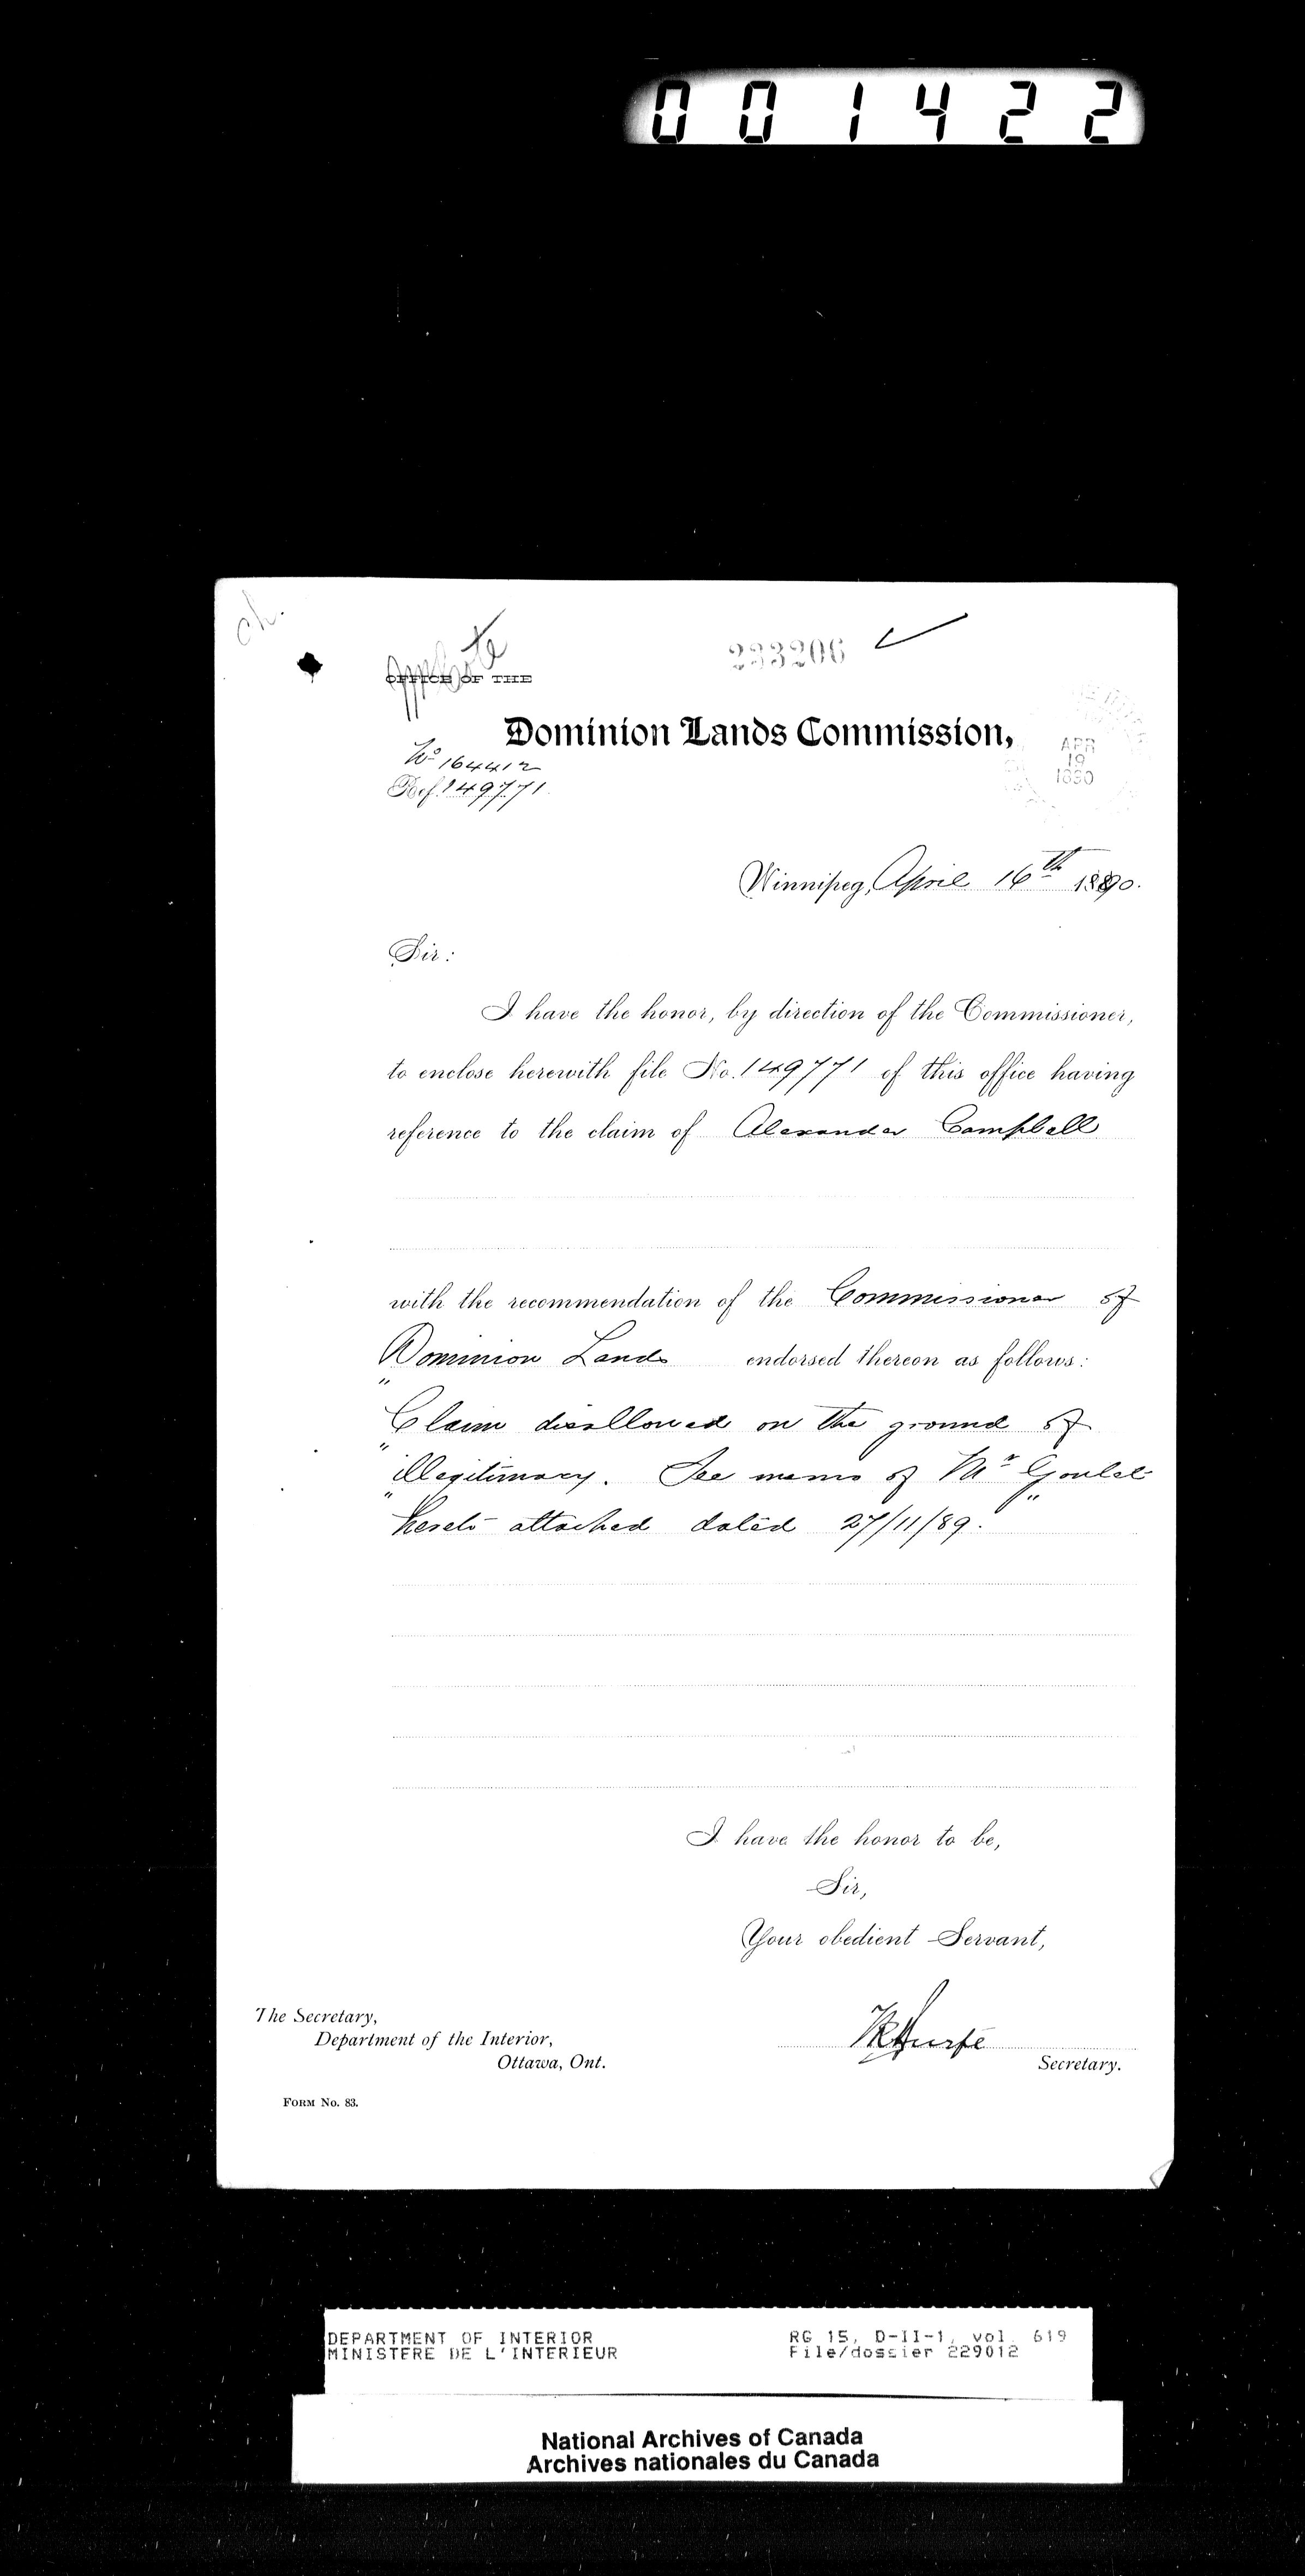 001422
ch.
233206
OFFICE OF THE
Dominion Lands Commission,
No 164412
Ref. 149771.
APR
19
1890
Winnipeg, April 16th 1890.
Sir:
I have the honor, by direction of the Commissioner,
to enclose herewith file No. 149771 of this office having
reference to the claim of Alexander Campbell
with the recommendation of the Commissioner of
Dominion Lands endorsed thereon as follows:
"Claim disallowed on the ground of
"illegitimacy. See memo of Mr Goulet
"hereto attached dated 27/11/89."
I have the honor to be,
Sir,
Your obedient Servant,
The Secretary,
Department of the Interior,
Ottawa, Ont.
Secretary.
FORM No. 83.
DEPARTMENT OF INTERIOR
MINISTERE DE L'INTERIEUR
RG 15, D-II-1, vol. 619
File/dossier 229012
National Archives of Canada
Archives nationales du Canada